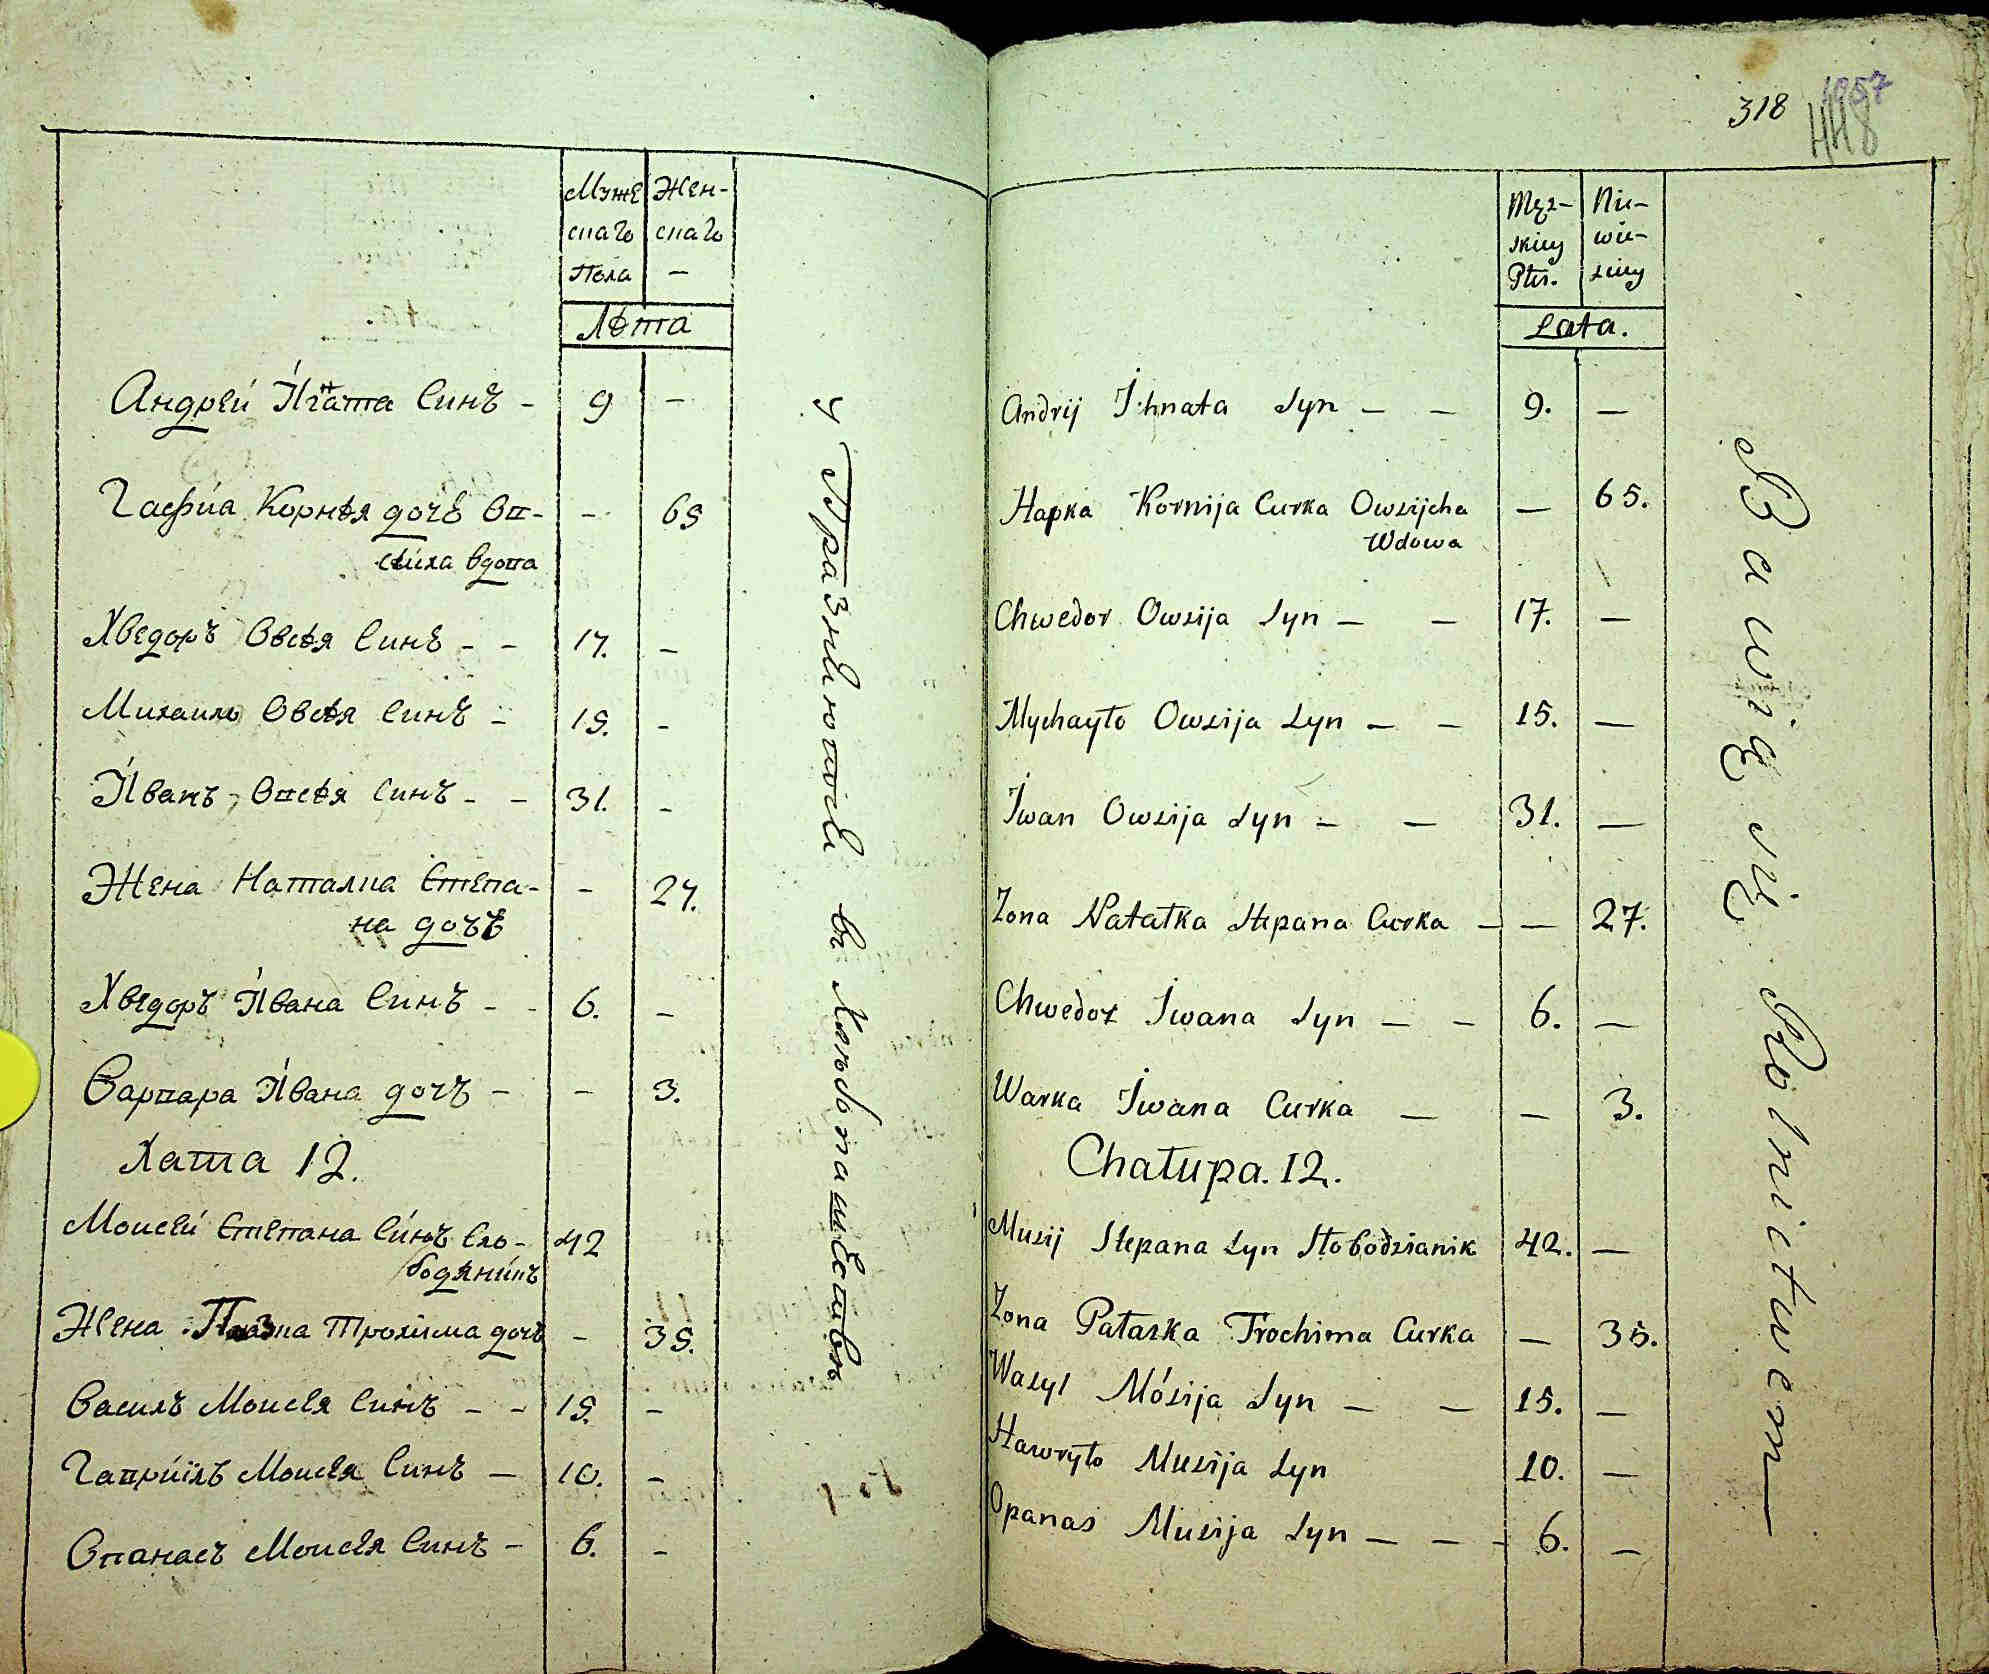 Муже
скаго
Пола
Жен-
скаго
—
Лѣта
Андрей Игната Синъ - 9 -
Гафиа Корнѣя дочъ Ов- - 65
сѣиха вдова
Хведоръ Овсѣя Синъ - - 17. -
Михаилъ Овсѣя Синъ - 15. -
Иванъ Овсѣя Синъ - - 31. -
Жена Наталиа Степа- - 27.
на дочъ
Хведоръ Ивана Синъ - - 6. -
Варвара Ивана дочъ - - 3.
Хата 12.
Моисей Степана Синъ Сло- 42
бодянинъ
Жена Трохима дочъ - 35.
Василъ Моисея Синъ - - 15. -
Гавриилъ Моисея Синъ - 10. -
Опанасъ Моисея Синъ - 6. -
Упразнюются въ
318
1057
448
Męz-
skiey
Płci.
Nie-
wie-
sciey
Lata.
Andrij Ihnata Syn — — 9. —
Hapka Kornija Curka Owsijcha — 65.
Wdowa
Chwedor Owsija Syn — — 17. —
Mychayło Owsija Syn — — 15. —
Iwan Owsija Syn — — 31. —
Zona Natałka Stepana Curka — — 27.
Chwedor Iwana Syn — — 6. —
Warka Iwana Curka — — 3.
Chałupa. 12.
Musij Stepana Syn Słobodzianik 42. —
Zona Pałaszka Trochima Curka — 35.
Wasyl Mósija Syn — — 15. —
Hawryło Musija Syn 10. —
Opanas Musija Syn — — - 6. —
Bawią się Rolnictwem